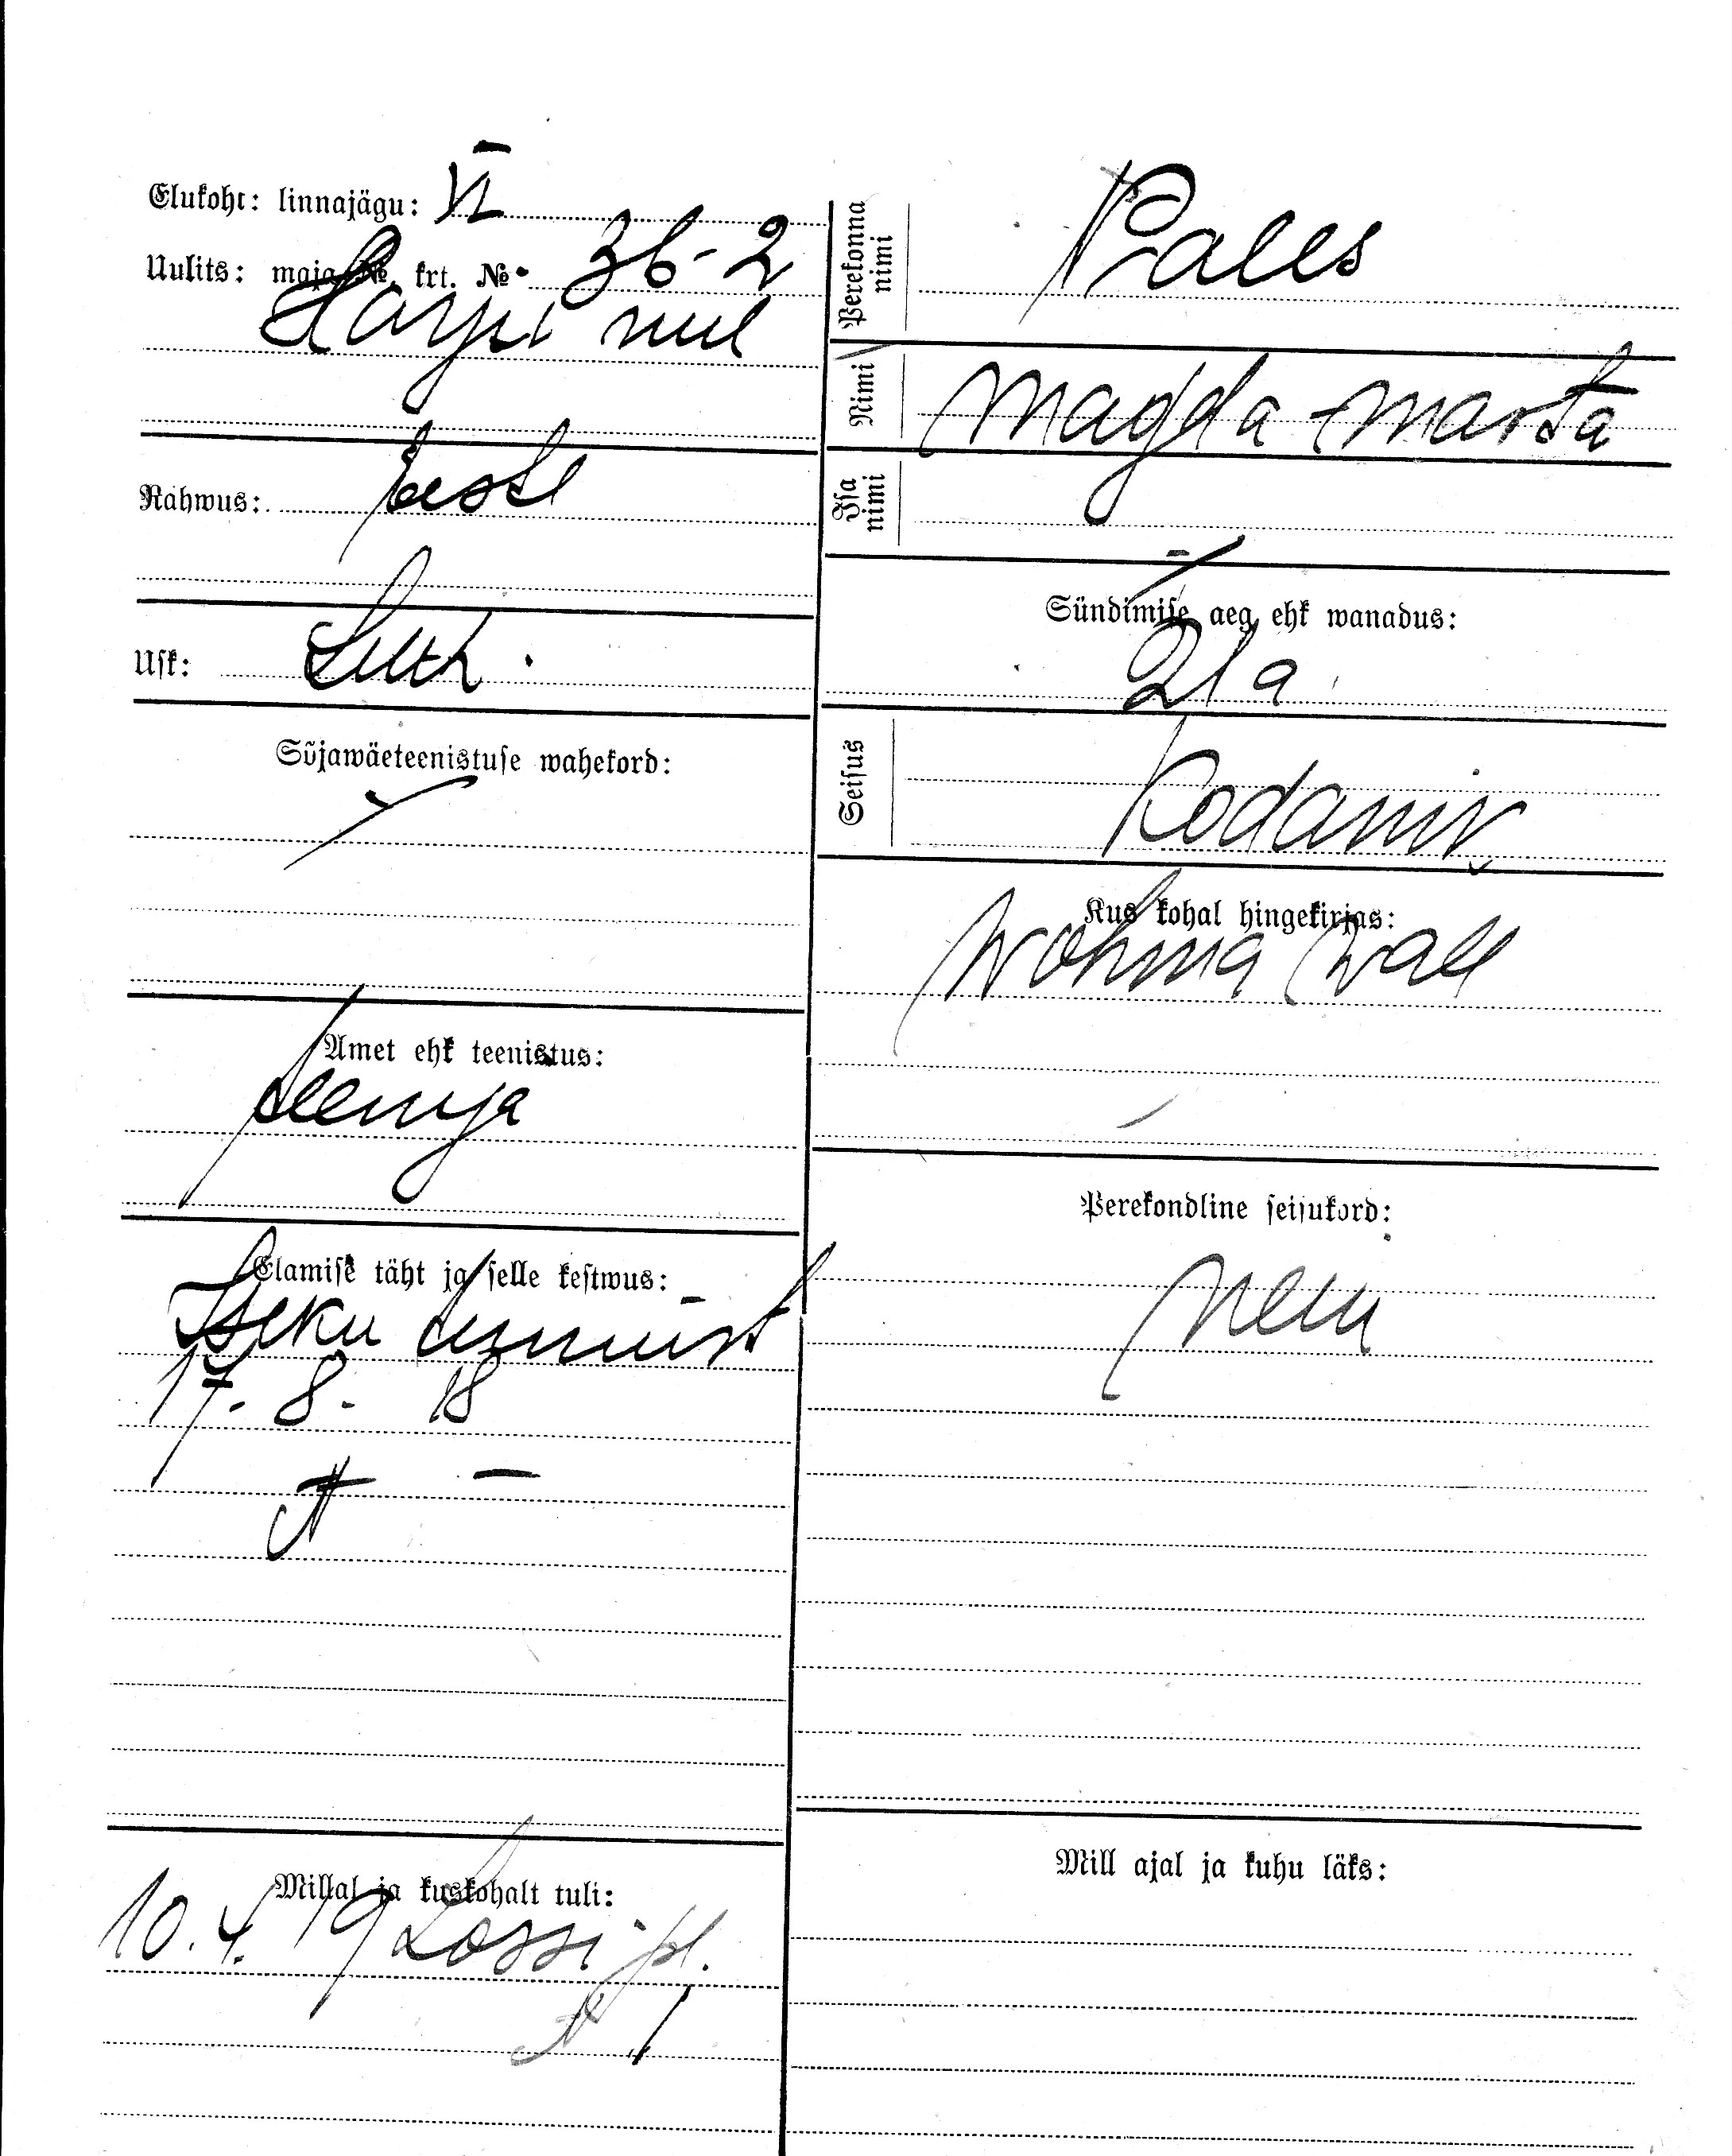 Elukoht: linnajägu: VI
Uulits: maja № krt. № 36-2
Harju uul
Rahwus: Eesti
Usk: Luth.
Sõjawäeteenistuse wahekord:
Amet ehk teenistus:
teenija
Elamise täht ja selle kestwus:
Isiku tunnist
17. 8. 18
№ -
Millal ja kuskohalt tuli:
10. 4. 19 Lossi pl.
№ 1
Perekonna nimi
Nimi Magda-Marta
Isa nimi -
Sündimise aeg ehk wanadus:
21 a
Seisus Kodanik
Kus kohal hingekirjas:
Wõhma wall
Perekondline seisukord:
Neiu
Mill ajal ja kuhu läks: